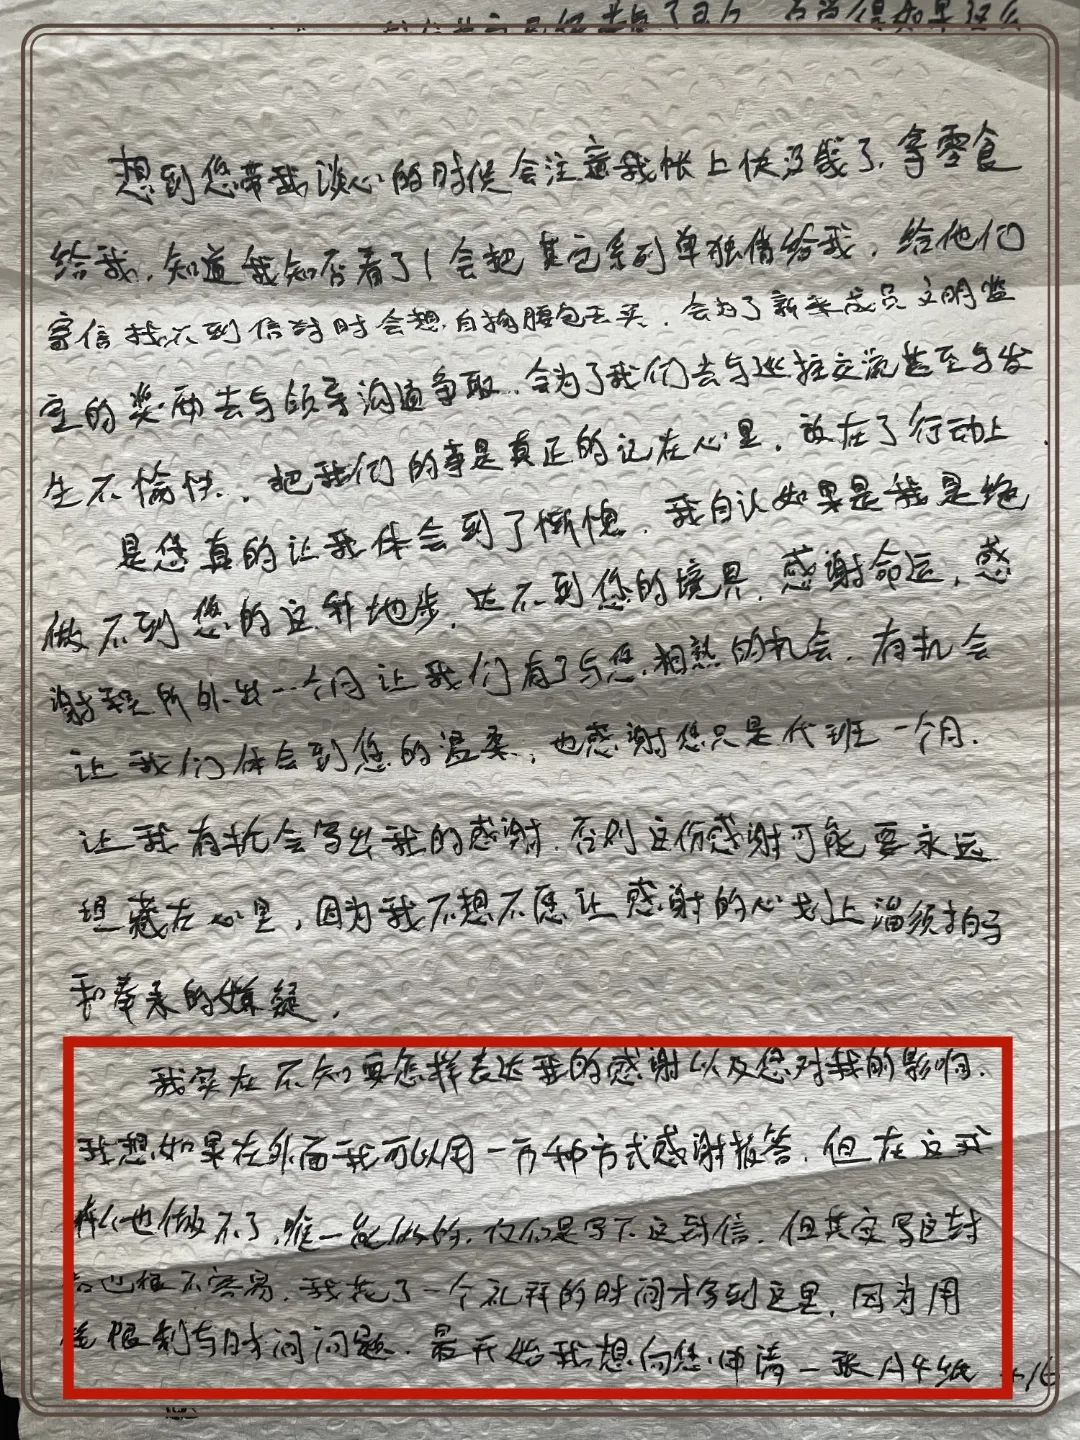 想到您带我谈心的时候会注意我帐上快没钱了，拿零食
给我，知道我知否看了！会把其它系列单独借给我，给他们
寄信找不到信封时会想自掏腰包去买，会为了新来成员文明监
室的奖励去与领导沟通争取，会为了我们去与巡控交流甚至与发
生不愉快，把我们的事是真正的记在心里，放在了行动上，
是您真的让我体会到了惭愧，我自认如果是我是绝
做不到您的这种地步，达不到您的境界，感谢命运，感
谢 所外出一个月让我们有了与您相熟的机会，有机会
让我们体会到您的温柔，也感谢您只是代班一个月，
让我有机会写出我的感谢，否则这份感谢可能要永远
埋藏在心里，因为我不想不愿让感谢的心划上溜须拍马
和奉承的嫌疑，
我实在不知要怎样表达我的感谢以及您对我的影响，
我想如果在外面我可以用一万种方式感谢报答，但在这我
什么也做不了，唯一能做的，仅仅是写下这封信，但其实写这封
信也很不容易，我花了一个礼拜的时间才写到这里，因为用
笔限制与时间问题，最开始我想向您申请一张A4纸